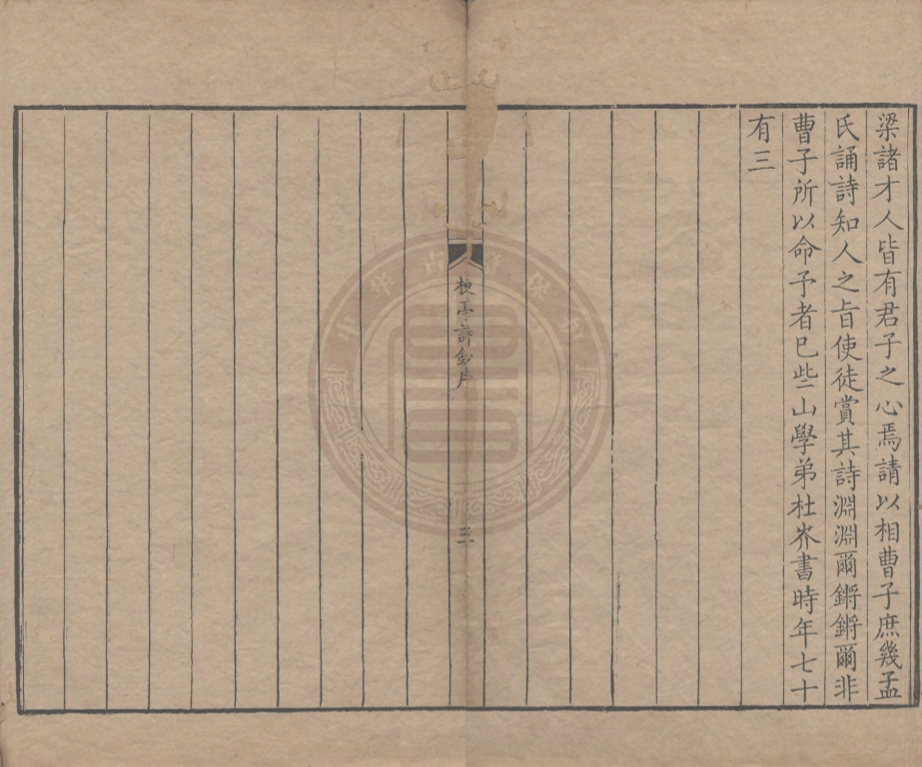 梁諸才人皆有君子之心焉請以相曹子庶幾孟
氏誦詩知人之旨使徒賞其詩淵淵爾鏘鏘爾非
曹子所以命予者已些山學弟杜岕書時年七十
有三
楝亭詩鈔序
三